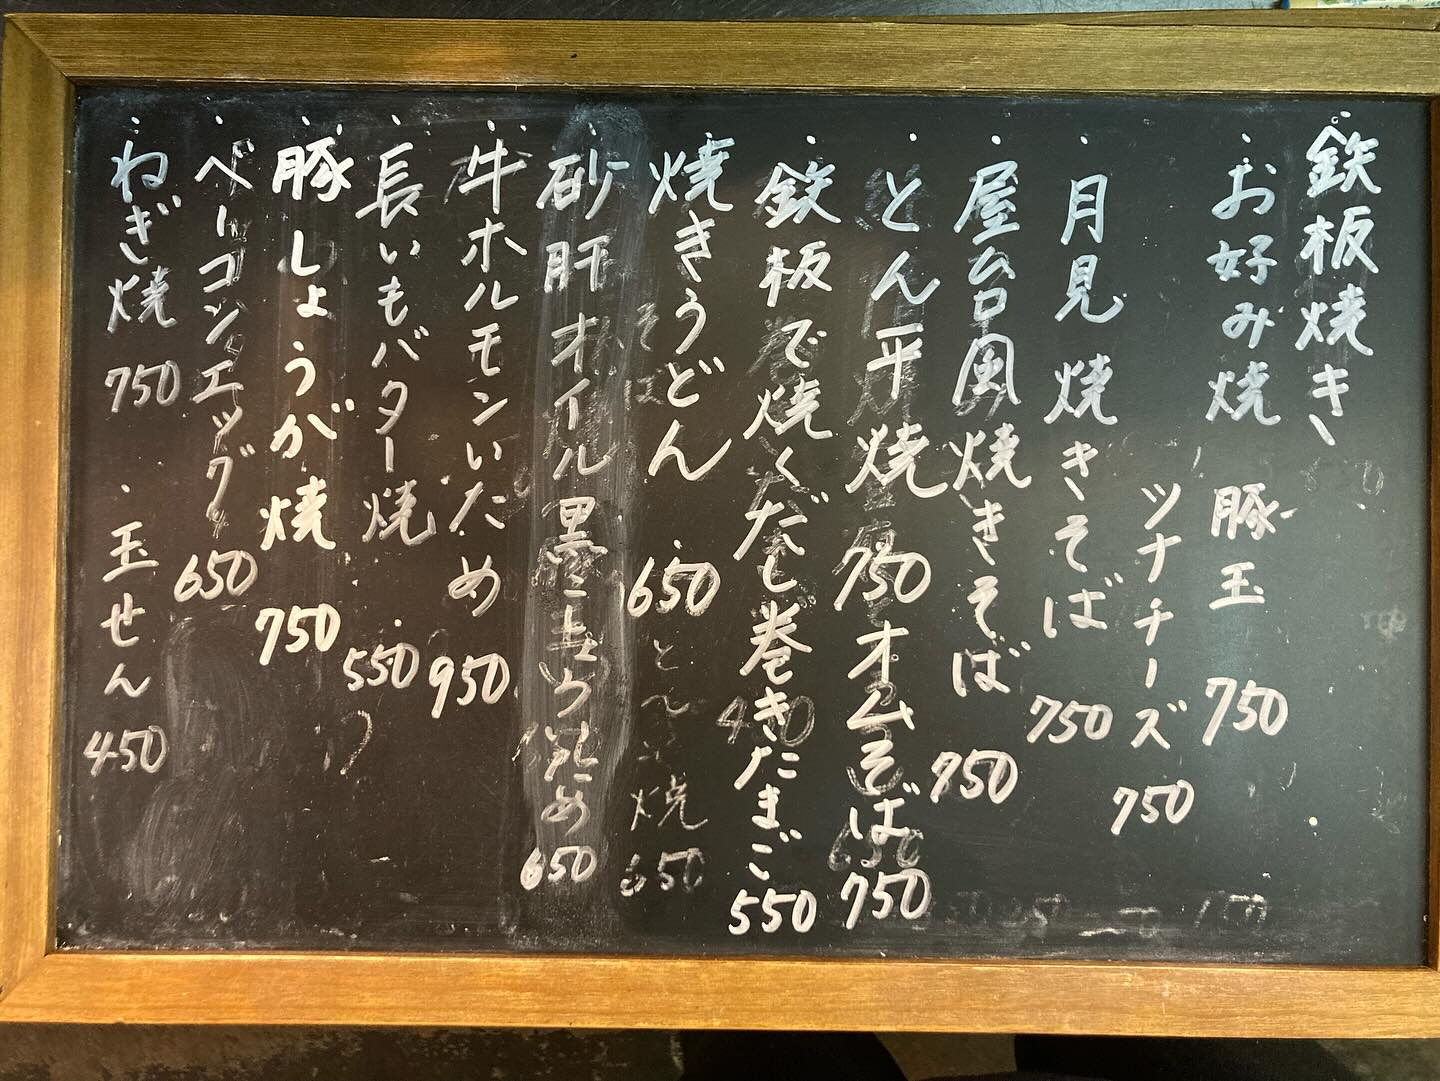 鉄板焼き
・お好み焼 豚玉 750
ツナチーズ 750
・月見焼きそば 750
・屋台風焼きそば 750
・とん平焼 750
オムそば 750
・鉄板で焼くだし巻きたまご 550
・焼きうどん 650
・砂肝オイル黒こしょういため 650
・牛ホルモンいため 950
・長いもバター焼 550
・豚しょうが焼 750
・ベーコンエッグ 650
・ねぎ焼 750
・玉せん 450